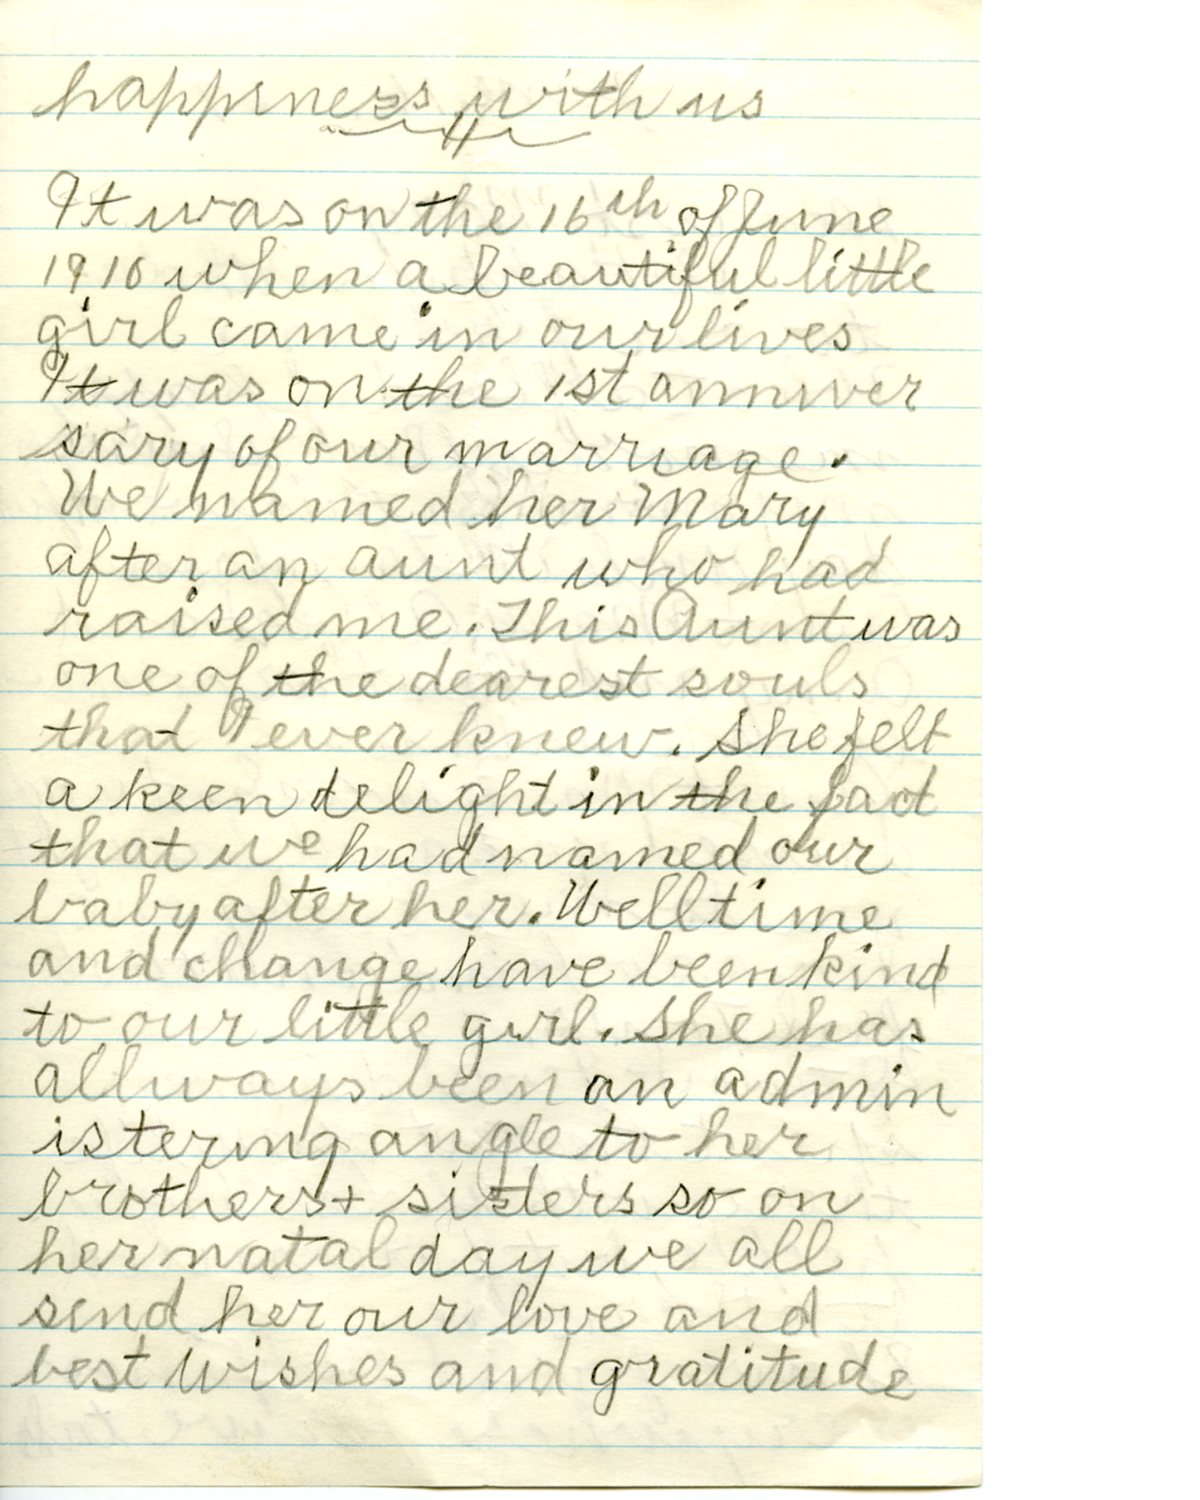 happiness with us
It was on the 16th of June
1910 when a beautiful little
girl came in our lives
It was on the 1st anniver
sary of our marriage.
We named her Mary
after an aunt who had
raised me. This Aunt was
one of the dearest souls
that I ever knew. She felt
a keen delight in the fact
that we had named our
baby after her. Well time
and change have been kind
to our little girl. She has
allways been an admin
istering angle to her
brothers + sisters so on
her natal day we all
send her our love and
best wishes and gratitude